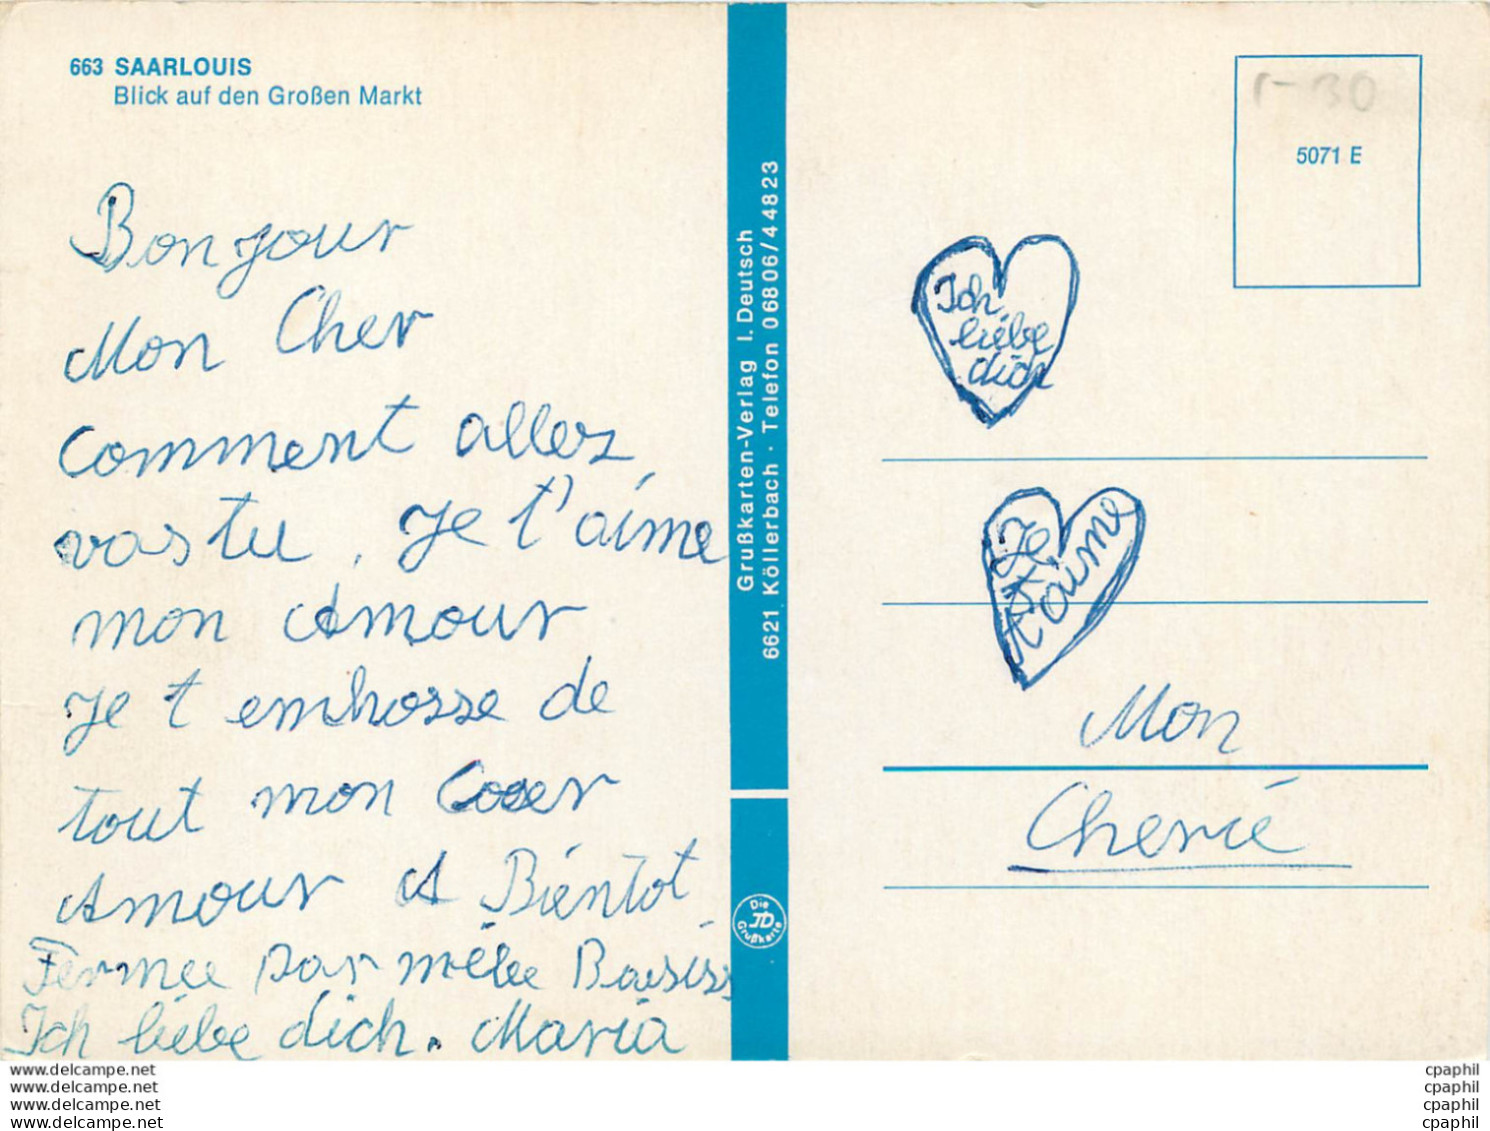 663 SAARLOUIS
Blick auf den Großen Markt
Bonjour
Mon Cher
Comment allez
vas tu, Je t'aime
mon Amour
Je t embrasse de
tout mon Coeer
Amour A Bientot
Fermee par mèlee Baisiss
Ich liebe dich. Maria
Grußkarten-Verlag I. Deutsch
6621 Köllerbach · Telefon 06806/44823
Die
JD
Grußkarte
r-30
5071 E
Ich
liebe
dich
Je
t'aime
Mon
Cherie
www.delcampe.net
www.delcampe.net
www.delcampe.net
www.delcampe.net
cpaphil
cpaphil
cpaphil
cpaphil